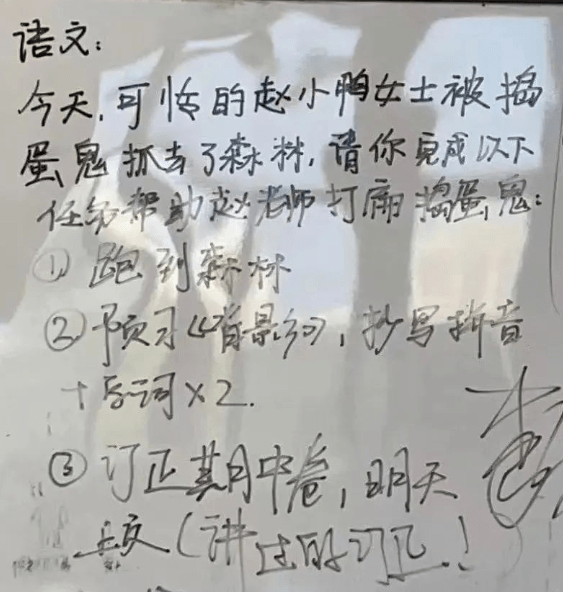 语文:
今天,可怜的赵小鸭女士被捣
蛋鬼抓去了森林,请你完成以下
任务帮助赵老师打扁捣蛋鬼:
① 跑到森林
② 预习《背影》,抄写拼音
+ 字词×2.
③ 订正期中卷,明天
上交(讲过的订正!)